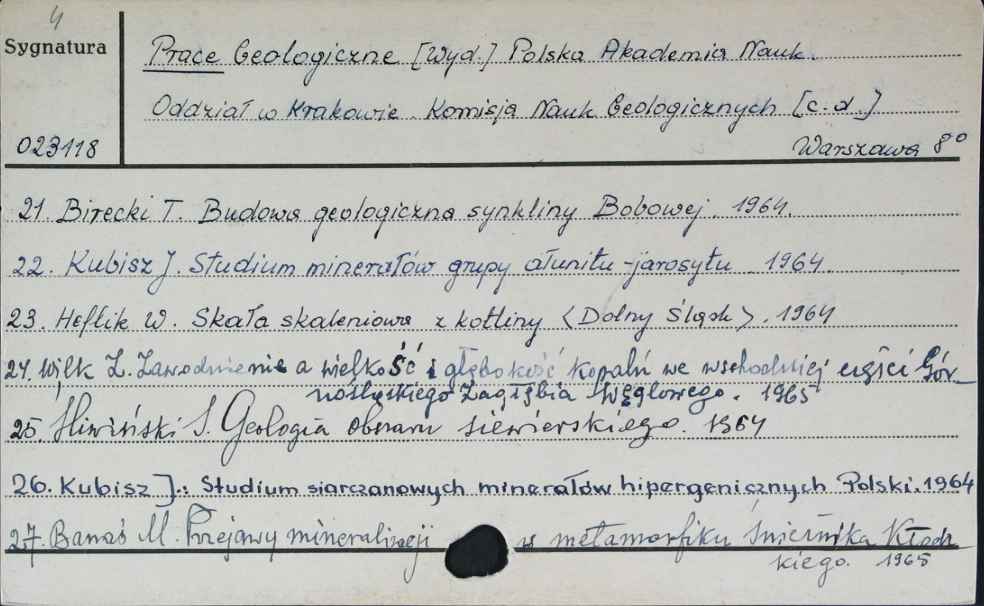 4
Sygnatura
Prace Geologiczne [Wyd.] Polska Akademia Nauk.
Oddział w Krakowie. Komisja Nauk Geologicznych [c.d.]
023118
Warszawa 8º
21. Birecki T. Budowa geologiczna synkliny Bobowej. 1964.
22. Kubisz J. Studium minerałów grupy ałunitu-jarosytu. 1964.
23. Heflik W. Skała skaleniowa z kotliny <Dolny Śląsk>. 1964
24. Wilk Z. Zawodnienie a wielkość i głębokość kopalń we wschodniej części Gór-
nośląskiego Zagłębia Węglowego. 1965
25. Śliwiński S. Geologia obszaru siewierskiego. 1964
26. Kubisz J.: Studium siarczanowych minerałów hipergenicznych Polski. 1964
27. Banaś M. Przejawy mineralizacji w metamorfiku Śnieżnika Kłodz-
kiego. 1965